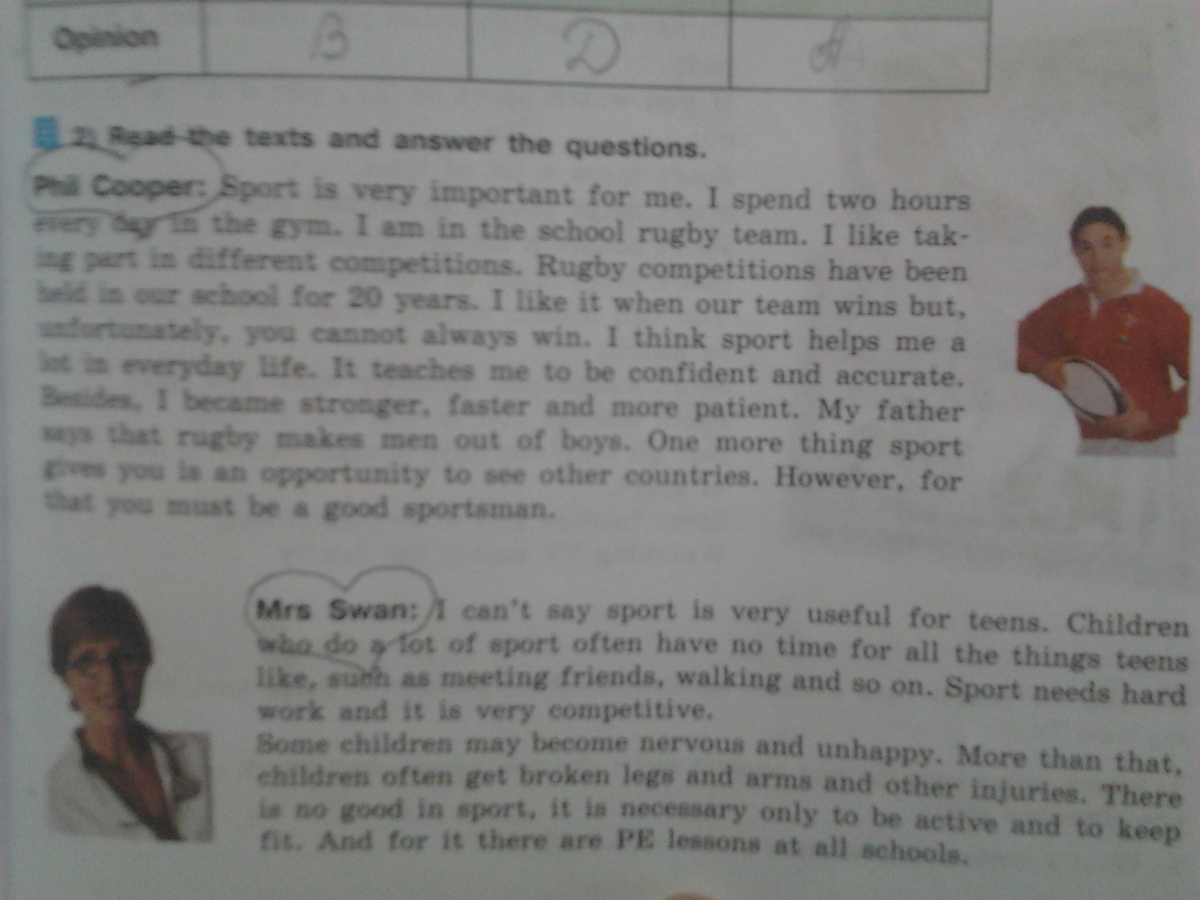 Opinion B D A
2) Read the texts and answer the questions.
Phil Cooper: Sport is very important for me. I spend two hours
every day in the gym. I am in the school rugby team. I like tak-
ing part in different competitions. Rugby competitions have been
held in our school for 20 years. I like it when our team wins but,
unfortunately, you cannot always win. I think sport helps me a
lot in everyday life. It teaches me to be confident and accurate.
Besides, I became stronger, faster and more patient. My father
says that rugby makes men out of boys. One more thing sport
gives you is an opportunity to see other countries. However, for
that you must be a good sportsman.
Mrs Swan: I can't say sport is very useful for teens. Children
who do a lot of sport often have no time for all the things teens
like, such as meeting friends, walking and so on. Sport needs hard
work and it is very competitive.
Some children may become nervous and unhappy. More than that,
children often get broken legs and arms and other injuries. There
is no good in sport, it is necessary only to be active and to keep
fit. And for it there are PE lessons at all schools.